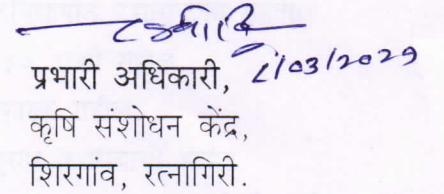 ८/03/2029
प्रभारी अधिकारी,
कृषि संशोधन केंद्र,
शिरगांव, रत्नागिरी.